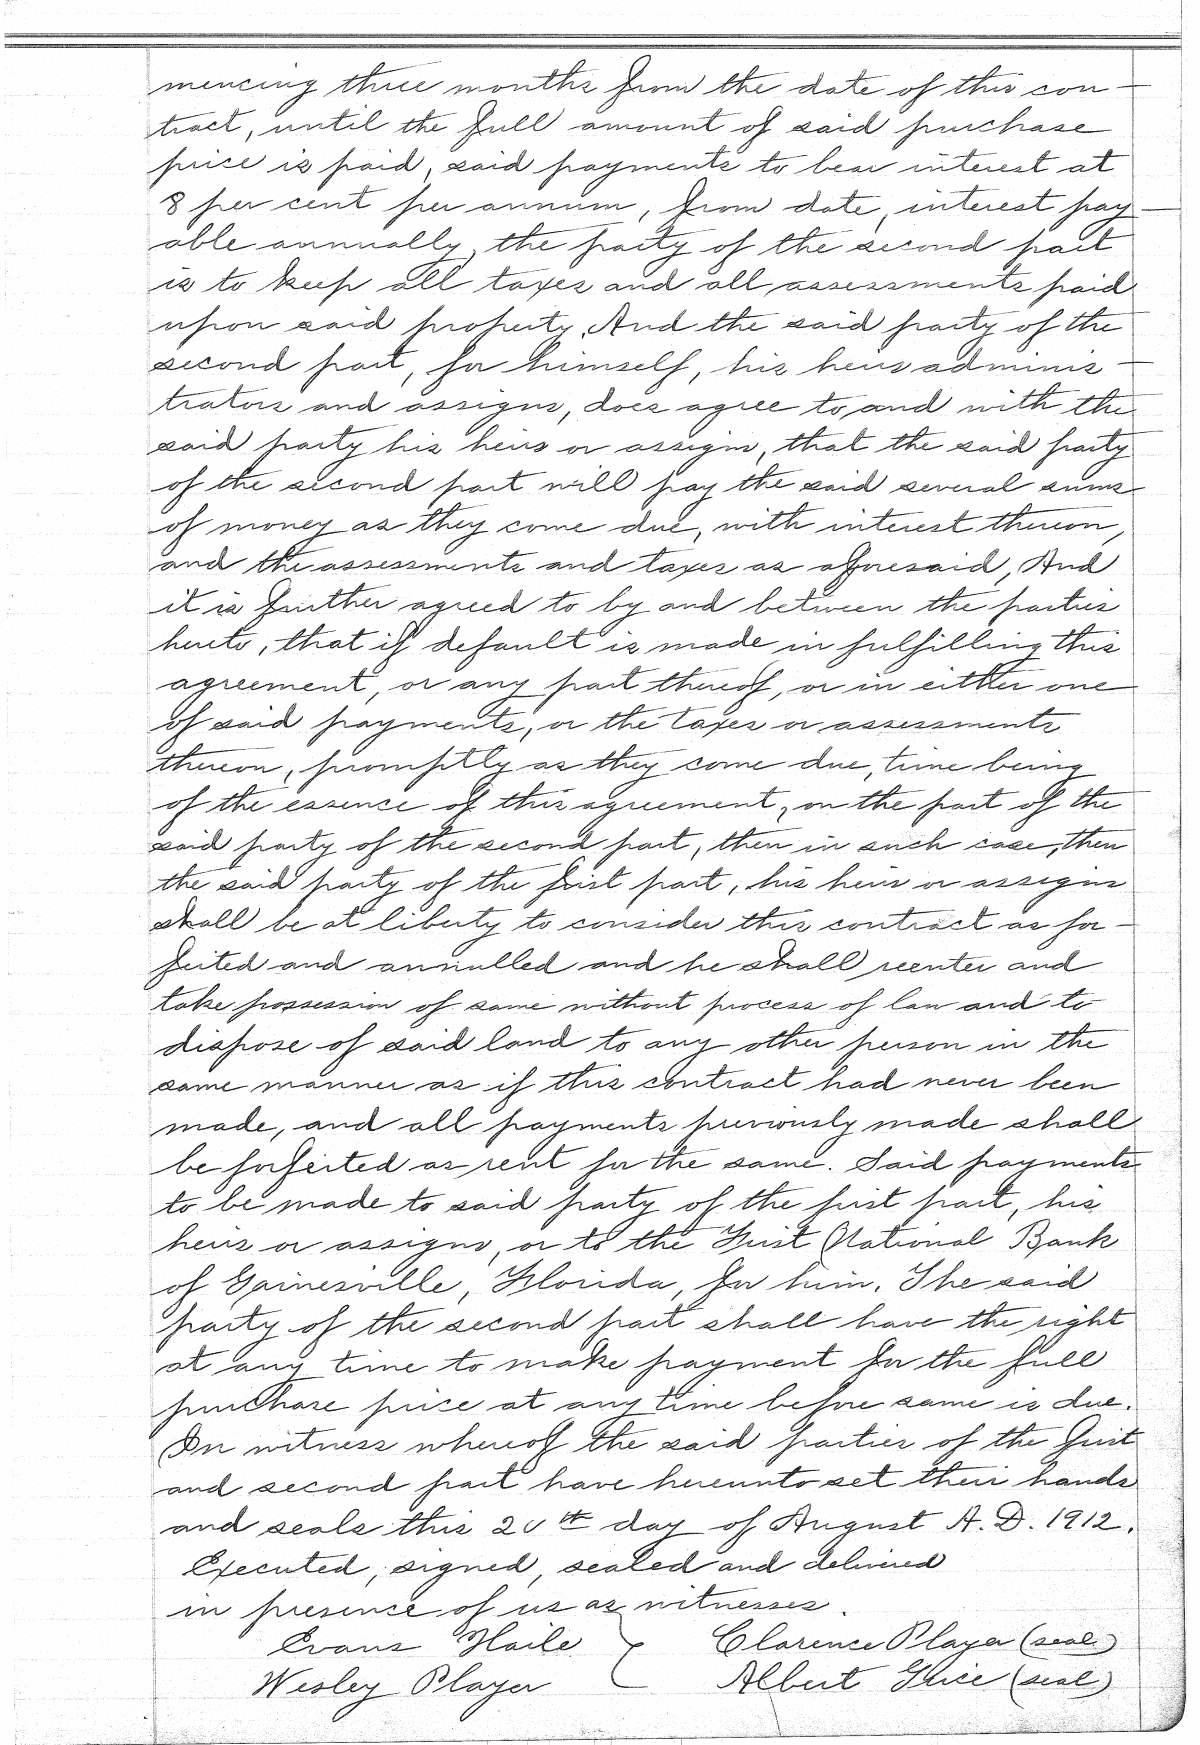 mencing three months from the date of this con-
tract, until the full amount of said purchase
price is paid, said payments to bear interest at
8 per cent per annum, from date, interest pay-
able annually, the party of the second part
is to keep all taxes and all assessments paid
upon said property. And the said party of the
second part, for himself, his heirs adminis-
trators and assigns, does agree to and with the
said party his heirs or assigns, that the said party
of the second part will pay the said several sums
of money as they come due, with interest thereon,
and the assessments and taxes as aforesaid, And
it is further agreed to by and between the parties
hereto, that if default is made in fulfilling this
agreement, or any part thereof, or in either one
of said payments, or the taxes or assessments
thereon, promptly as they come due, time being
of the essence of this agreement, on the part of the
said party of the second part, then in such case, then
the said party of the first part, his heirs or assigns
shall be at liberty to consider this contract as for-
feited and annulled and he shall reenter and
take possession of same without process of law and to
dispose of said land to any other person in the
same manner as if this contract had never been
made, and all payments previously made shall
be forfeited as rent for the same. Said payments
to be made to said party of the first part, his
heirs or assigns, or to the First National Bank
of Gainesville, Florida, for him. The said
party of the second part shall have the right
at any time to make payment for the full
purchase price at any time before same is due.
In witness whereof the said parties of the first
and second part have hereunto set their hands
and seals this 20th day of August A.D. 1912.
Executed, signed, sealed and delivered
in presence of us as witnesses.
Evans Haile Clarence Player (seal)
Wesley Player Albert Grice (seal)